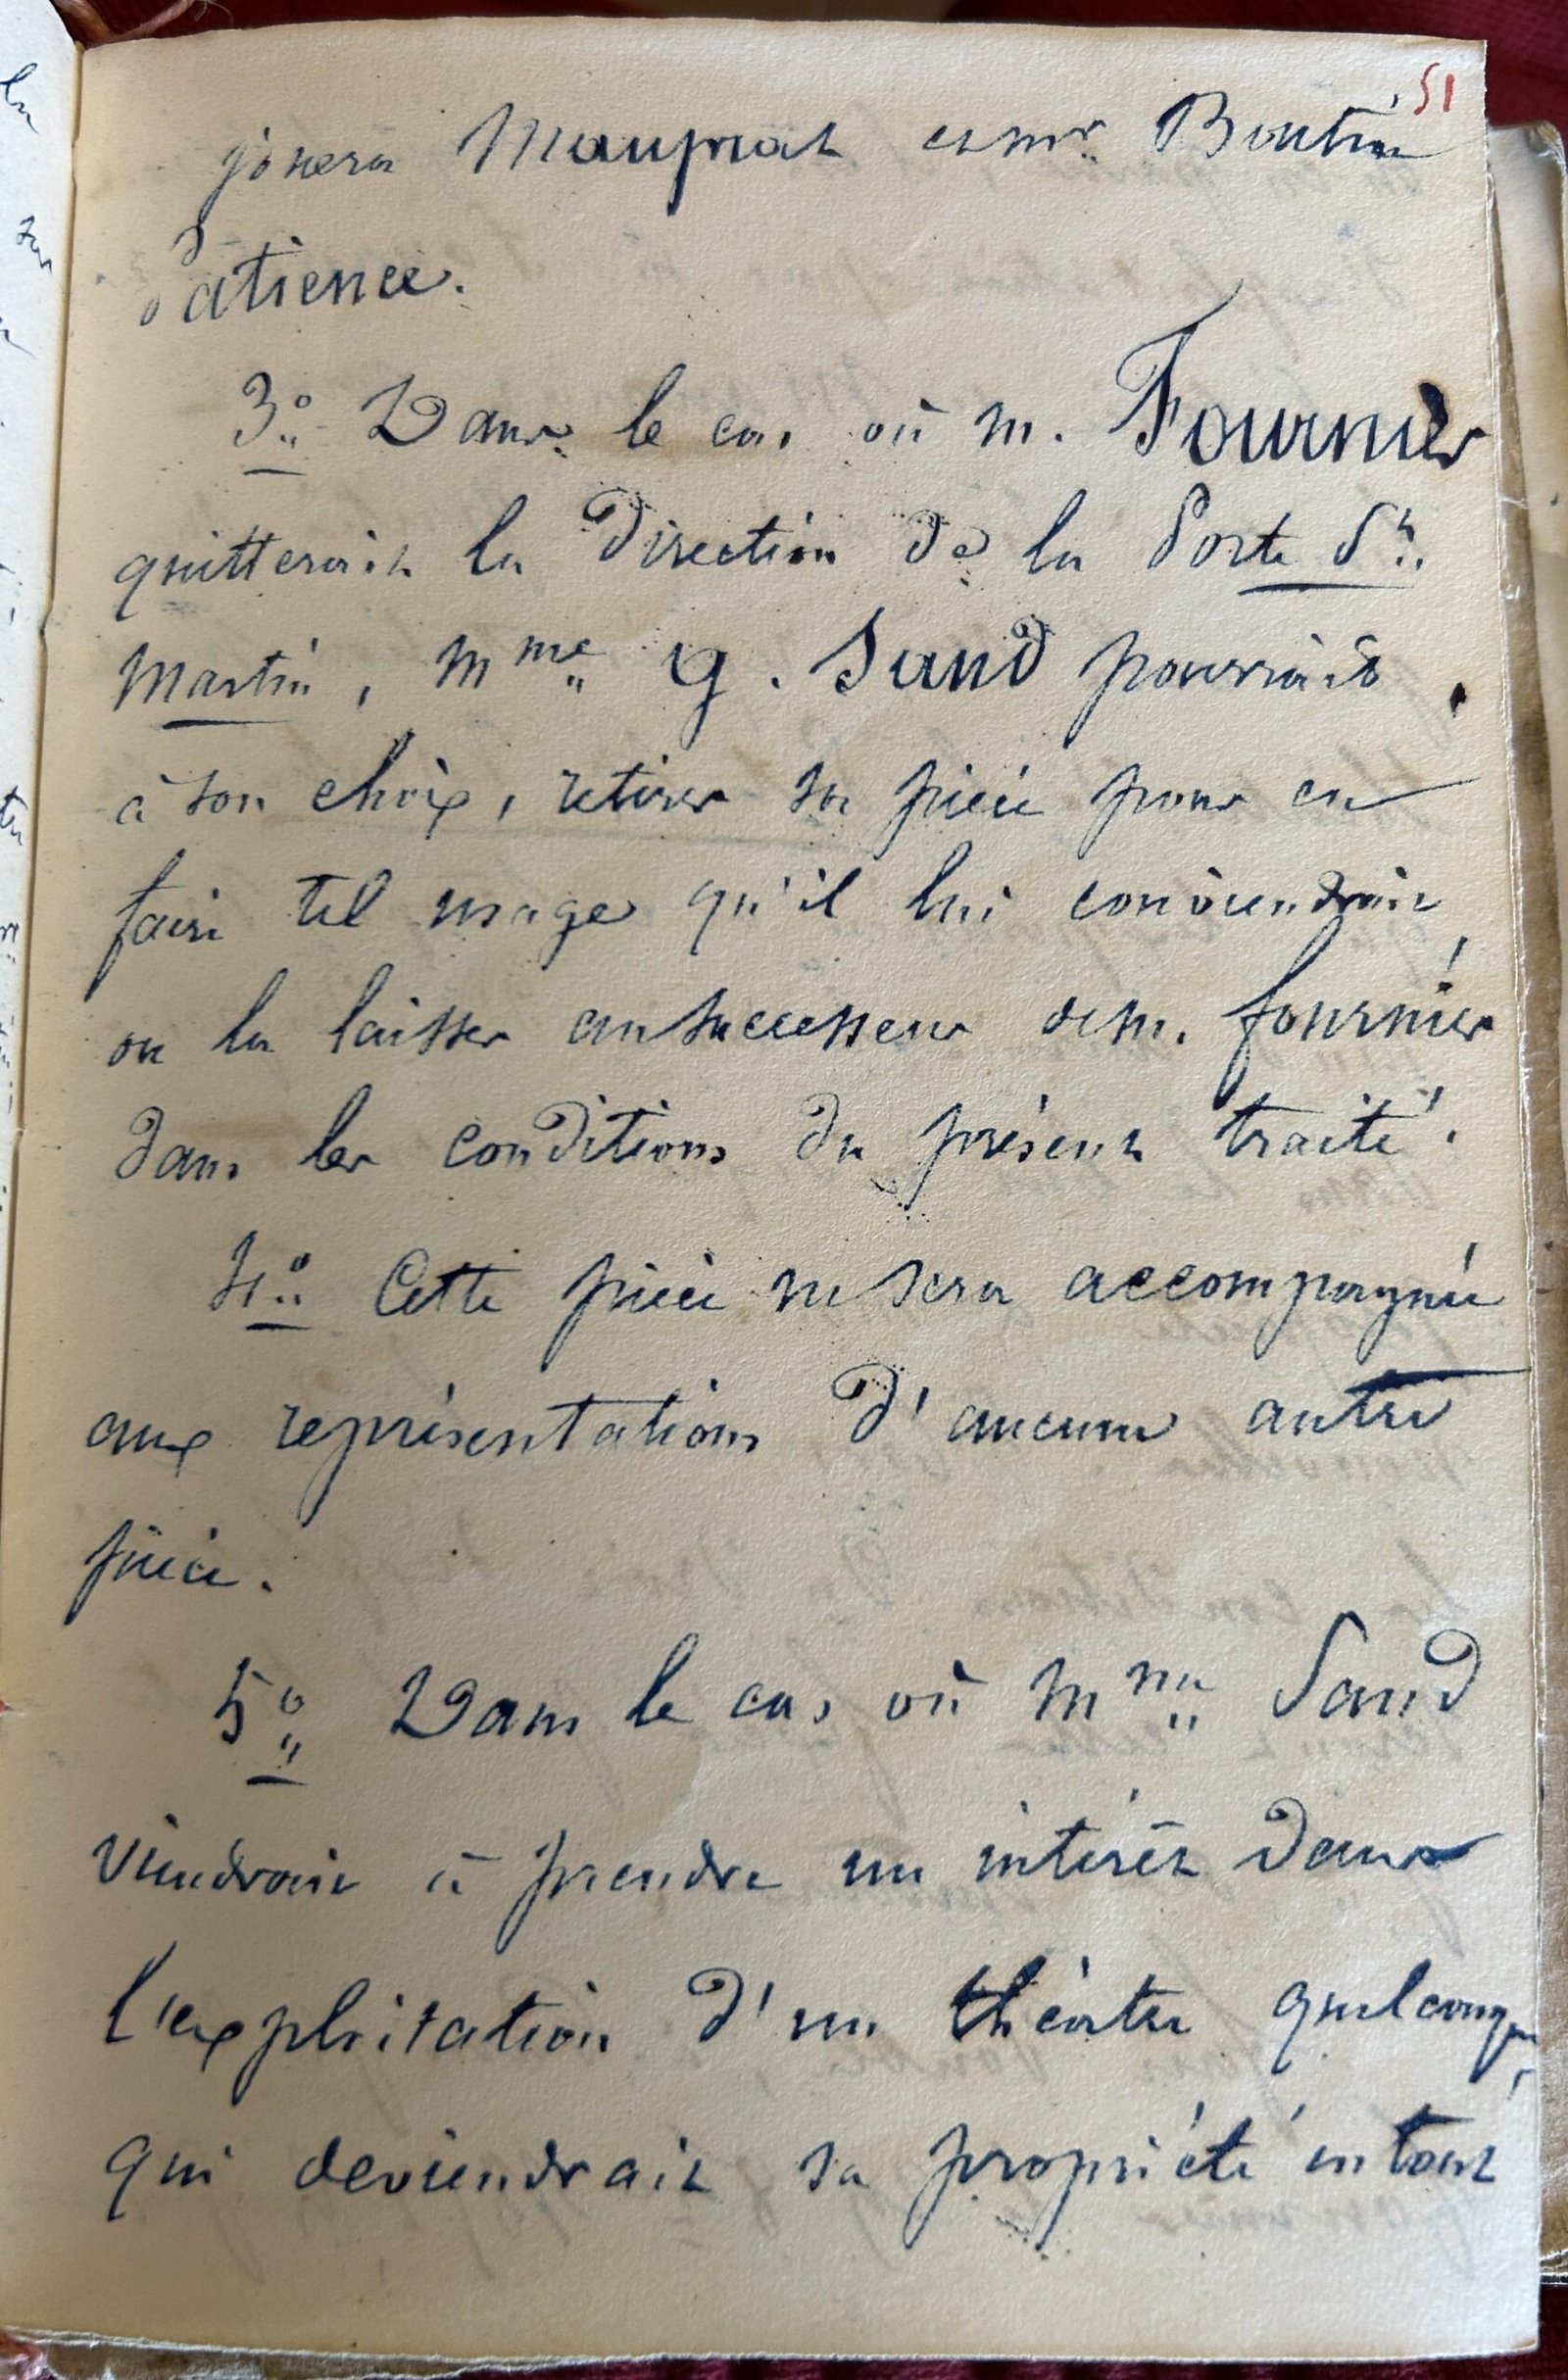 51
jouera Mauprat et mr. Boutin
Patience.
3o. Dans le cas où m. Fournier
quitterait la direction de la Porte St.
Martin, Mme. G. Sand pourrait
à son choix, retirer sa pièce pour en
faire tel usage qu'il lui conviendrait
ou la laisser au successeur de m. fournier
dans les conditions du présent traité.
4o. Cette pièce ne sera accompagnée
aux représentations d'aucune autre
pièce.
5o. Dans le cas où Mme. Sand
viendrait à prendre un intérêt dans
l'exploitation d'un théâtre quelconque,
qui deviendrait sa propriété en tout